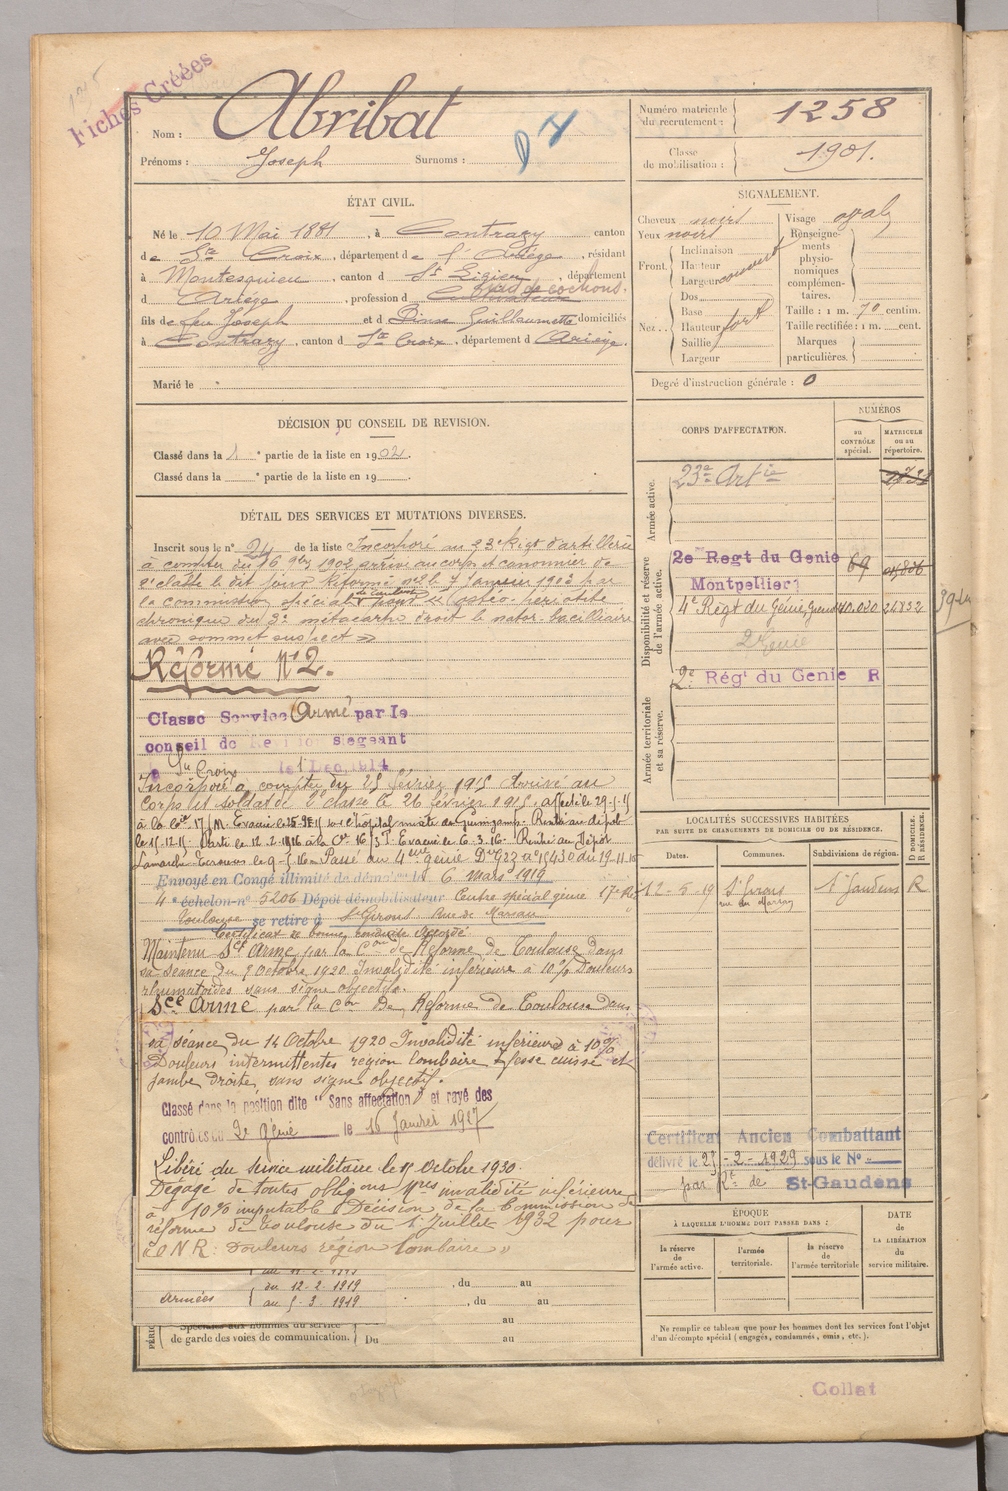 Fiches Créées
Nom : Abribat
Prénoms : Joseph Surnoms :
Numéro matricule du recrutement : 1258
Classe de mobilisation : 1901.
ÉTAT CIVIL.
Né le 10 Mai 1881, à Contrazy, canton
de Ste Croix, département de l'Ariège, résidant
à Montesquieu, canton d St Lizier, département
d Ariège, profession d Cultivateur md de cochons.
fils de feu Joseph et d Dinse Guillaumette domiciliés
à Contrazy, canton d Ste Croix, département d Ariège.
Marié le
SIGNALEMENT.
Cheveux noirs
Yeux noirs
Front Inclinaison
Hauteur
Largeur couvert
Nez Dos
Base
Hauteur fort
Saillie
Largeur
Visage ovale
Renseignements physionomiques complémentaires.
Taille : 1 m. 70 centim.
Taille rectifiée : 1 m. cent.
Marques particulières.
Degré d'instruction générale : 0
DÉCISION DU CONSEIL DE REVISION.
Classé dans la 1 e partie de la liste en 1902.
Classé dans la e partie de la liste en 19
DÉTAIL DES SERVICES ET MUTATIONS DIVERSES.
Inscrit sous le n° 24 de la liste Incorporé au 23e Regt d'artillerie
à compter du 16 9bre 1902 arrivé au corps et canonnier de
2e classe le dit jour Réformé n°2 le 7 Janvier 1903 par
la commission spéciale pour ostéo-périostite
chronique du 3e métacarpe droit
avec sommet suspect »
Réformé N°2.
Classé Service Armé par le
conseil de Revision siégeant
à Ste Croix le 1 Dec 1914
Incorporé à compter du 25 février 1915 Arrivé au
Corps et soldat de 2e classe le 26 février 1915.
à la Cie 17/M. Evacué le l'hôpital mixte de Guingamp. Rentré au dépôt
le 15-12-15 Parti le 12.2.1916 à la Cie 16/3T. Evacué le 6-3.16. Rentré au Dépôt
Passé au 4ème génie du 19-11-
Envoyé en Congé illimité de démob le 6 mars 1919
4e échelon n° 5206 Dépôt démobilisateur Centre spécial génie 17e R
Toulouse se retire à St Girons Rue de
Certificat de bonne conduite Accordé
Maintenu Sce Armé par la Con de Réforme de Toulouse dans
sa séance du 9 Octobre 1920 Invalidité inférieure à 10% Douleurs
rhumatoïdes sans signe objectifs.
Sce Armé par la Con De Réforme de Toulouse dans
sa séance du 14 Octobre 1920 Invalidité inférieure à 10%
Douleurs intermittentes région lombaire fesse cuisse et
jambe droite, sans signe objectif.
Classé dans la position dite "Sans affectation" et rayé des
contrôles du 2e génie le 16 Janvier 1927
Libéré du service militaire le 15 Octobre 1930.
Dégagé de toutes obligons Mres invalidité inférieure
à 10% imputable Décision de la Commission de
réforme de Toulouse du 1 Juillet 1932 pour
"O N R : Douleurs région lombaire »
Armées
du 12-2-1919
au 5-3-1919
, du au
, du au
au
Spéciales aux hommes du service
de garde des voies de communication. Du au
CORPS D'AFFECTATION.
NUMÉROS
au CONTRÔLE spécial.
MATRICULE ou au répertoire.
Armée active.
23e Artie
Disponibilité et réserve de l'armée active.
2e Regt du Genie 69
Montpellier
4e Régt du Génie, Grenoble 24832
2e Génie
2e Régt du Genie R
Armée territoriale et sa réserve.
LOCALITÉS SUCCESSIVES HABITÉES
PAR SUITE DE CHANGEMENTS DE DOMICILE OU DE RÉSIDENCE.
Dates. Communes. Subdivisions de région. D DOMICILE. R RÉSIDENCE.
12-5-19 St Girons St Gaudens R
Certificat Ancien Combattant
délivré le 25-2-1929 sous le N°
par Rt de St-Gaudens
ÉPOQUE
À LAQUELLE L'HOMME DOIT PASSER DANS :
DATE de LA LIBÉRATION du service militaire.
la réserve de l'armée active.
l'armée territoriale.
la réserve de l'armée territoriale
Ne remplir ce tableau que pour les hommes dont les services font l'objet
d'un décompte spécial (engagés, condamnés, omis, etc.).
Collat